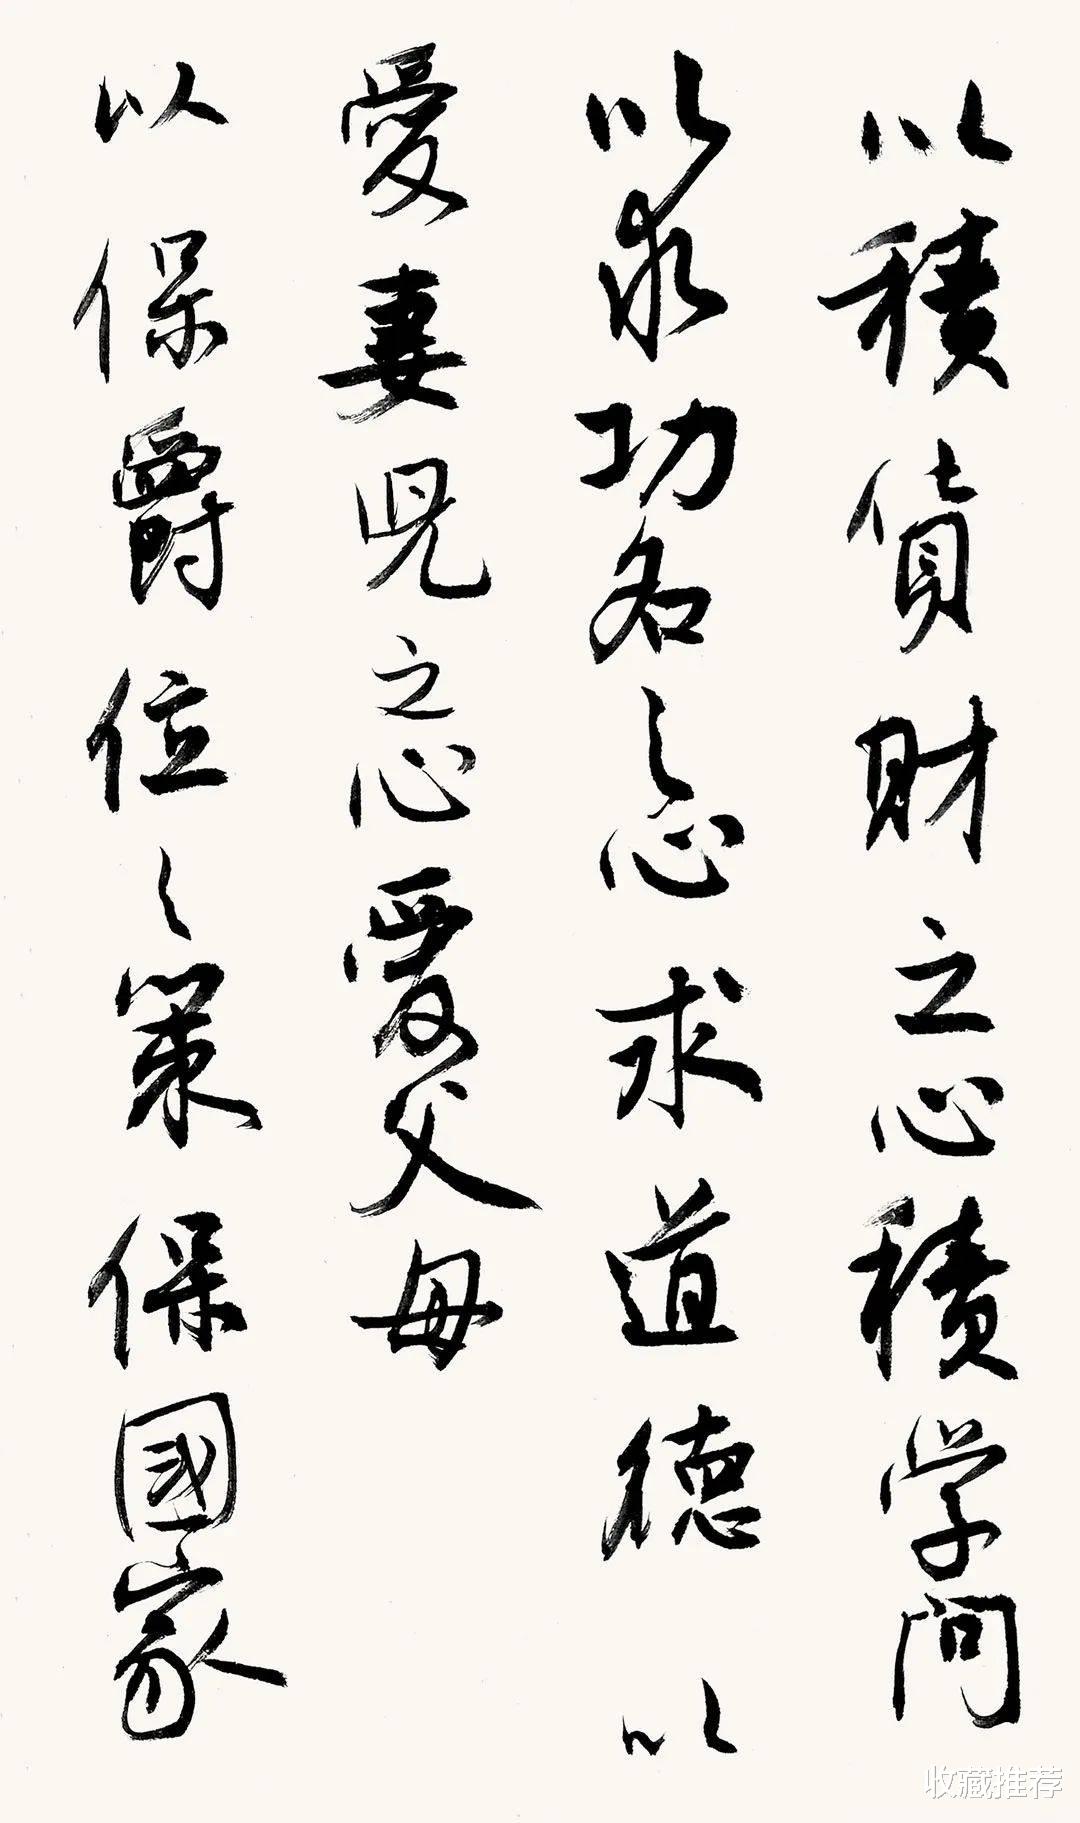 以積貨財之心積学问
以求功名之心求道德以
愛妻児之心愛父母
以保爵位之策保國家
收藏推荐